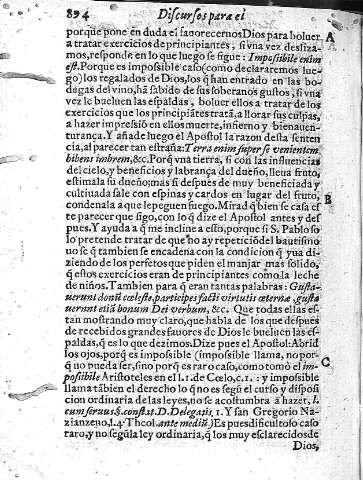 894 Discursos para el
porque pone en duda el fauorecernos Dios para boluer A
a tratar exercicios de principiantes, si vna vez desliza-
mos, responde en lo que luego se sigue: Impossibile enim
est. Porque es impossible caso (como declararemos lue-
go) los regalados de Dios, los q̃ han entrado en las bo-
degas del vino, hã sabido de sus soberanos gustos, si vna
vez le bueluen las espaldas, boluer ellos a tratar de los
exercicios que los principiãtes tratã, a llorar sus culpas,
a hazer impressiõ en ellos muerte, infierno y bienauen-
turança. Y añade luego el Apostol la razon desta senten
cia, al parecer tan estraña: Terra enim super se venientem
bibens imbrem, &c. Porq̃ vna tierra, si con las influencias
del cielo, y beneficios y labrança del dueño, lleua fruto,
estimala su dueño, mas si despues de muy beneficiada y
cultiuada sale con espinas y cardos en lugar del fruto,
condenala a que le peguen fuego. Mirad q̃ bien se casa es B
te parecer que sigo, con lo q̃ dize el Apostol antes y des
pues. Y ayuda a q̃ me incline a esto, porque si S. Pablo so
lo pretende tratar de que no ay repeticiõ del bautismo
no se q̃ tambien se encadena con la condicion q̃ yua di
ziendo de los perfetos que piden el manjar mas solido,
q̃ estos exercicios eran de principiantes como la leche
de niños. Tambien para q̃ eran tantas palabras: Gusta-
uerunt donũ cœleste, participes facti virtutis æternæ, gusta
uerunt etiã bonum Dei verbum, &c. Que todas ellas es-
tan mostrando muy claro, que habla de los que despues
de recebidos grandes fauores de Dios le bueluen las es-
paldas, q̃ es lo que dezimos. Dize pues el Apostol: Abrid
los ojos, porq̃ es impossible (impossible llama, no por-
q̃ no pueda ser, sino porq̃ es raro caso, como tomò el im- C
possibile Aristoteles en el l.1. de Cœlo, c.1. : y impossible
llama tãbien el derecho lo q̃ no es segũ el curso y disposi
cion ordinaria de las leyes, no se acostumbra a hazer, l.
cum seruus. §. const. tt. D. De legatis, 1. Y san Gregorio Na-
zianzeno, l.4. Theol. ante mediũ.) Es pues dificultoso caso
raro, y no segũ la ley ordinaria, q̃ los muy esclarecidos de
Dios,